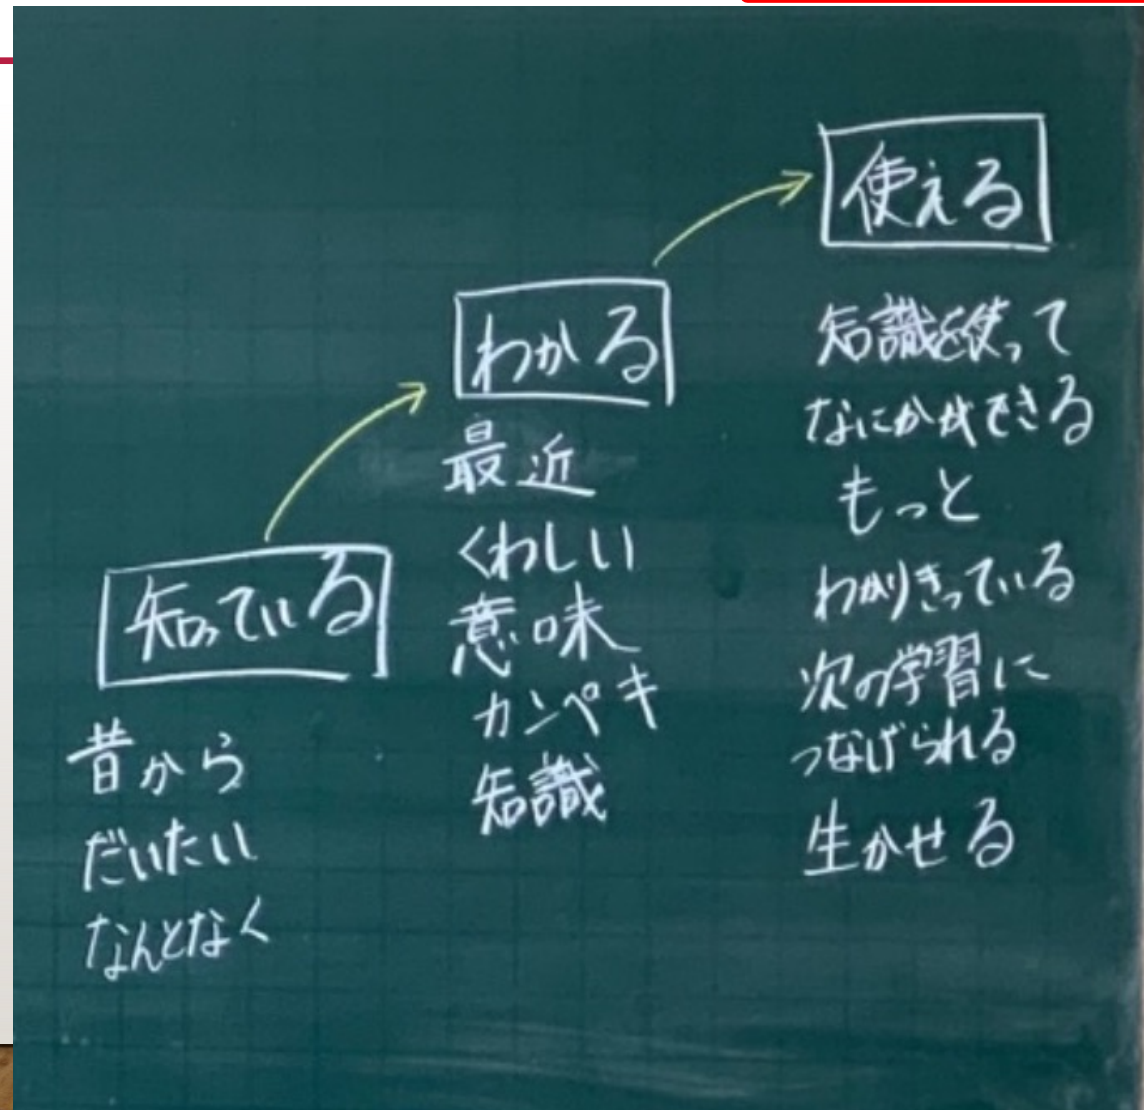 知っている
昔から
だいたい
なんとなく
わかる
最近
くわしい
意味
カンペキ
知識
使える
知識を使って
なにかができる
もっと
わかりきっている
次の学習に
つなげられる
生かせる